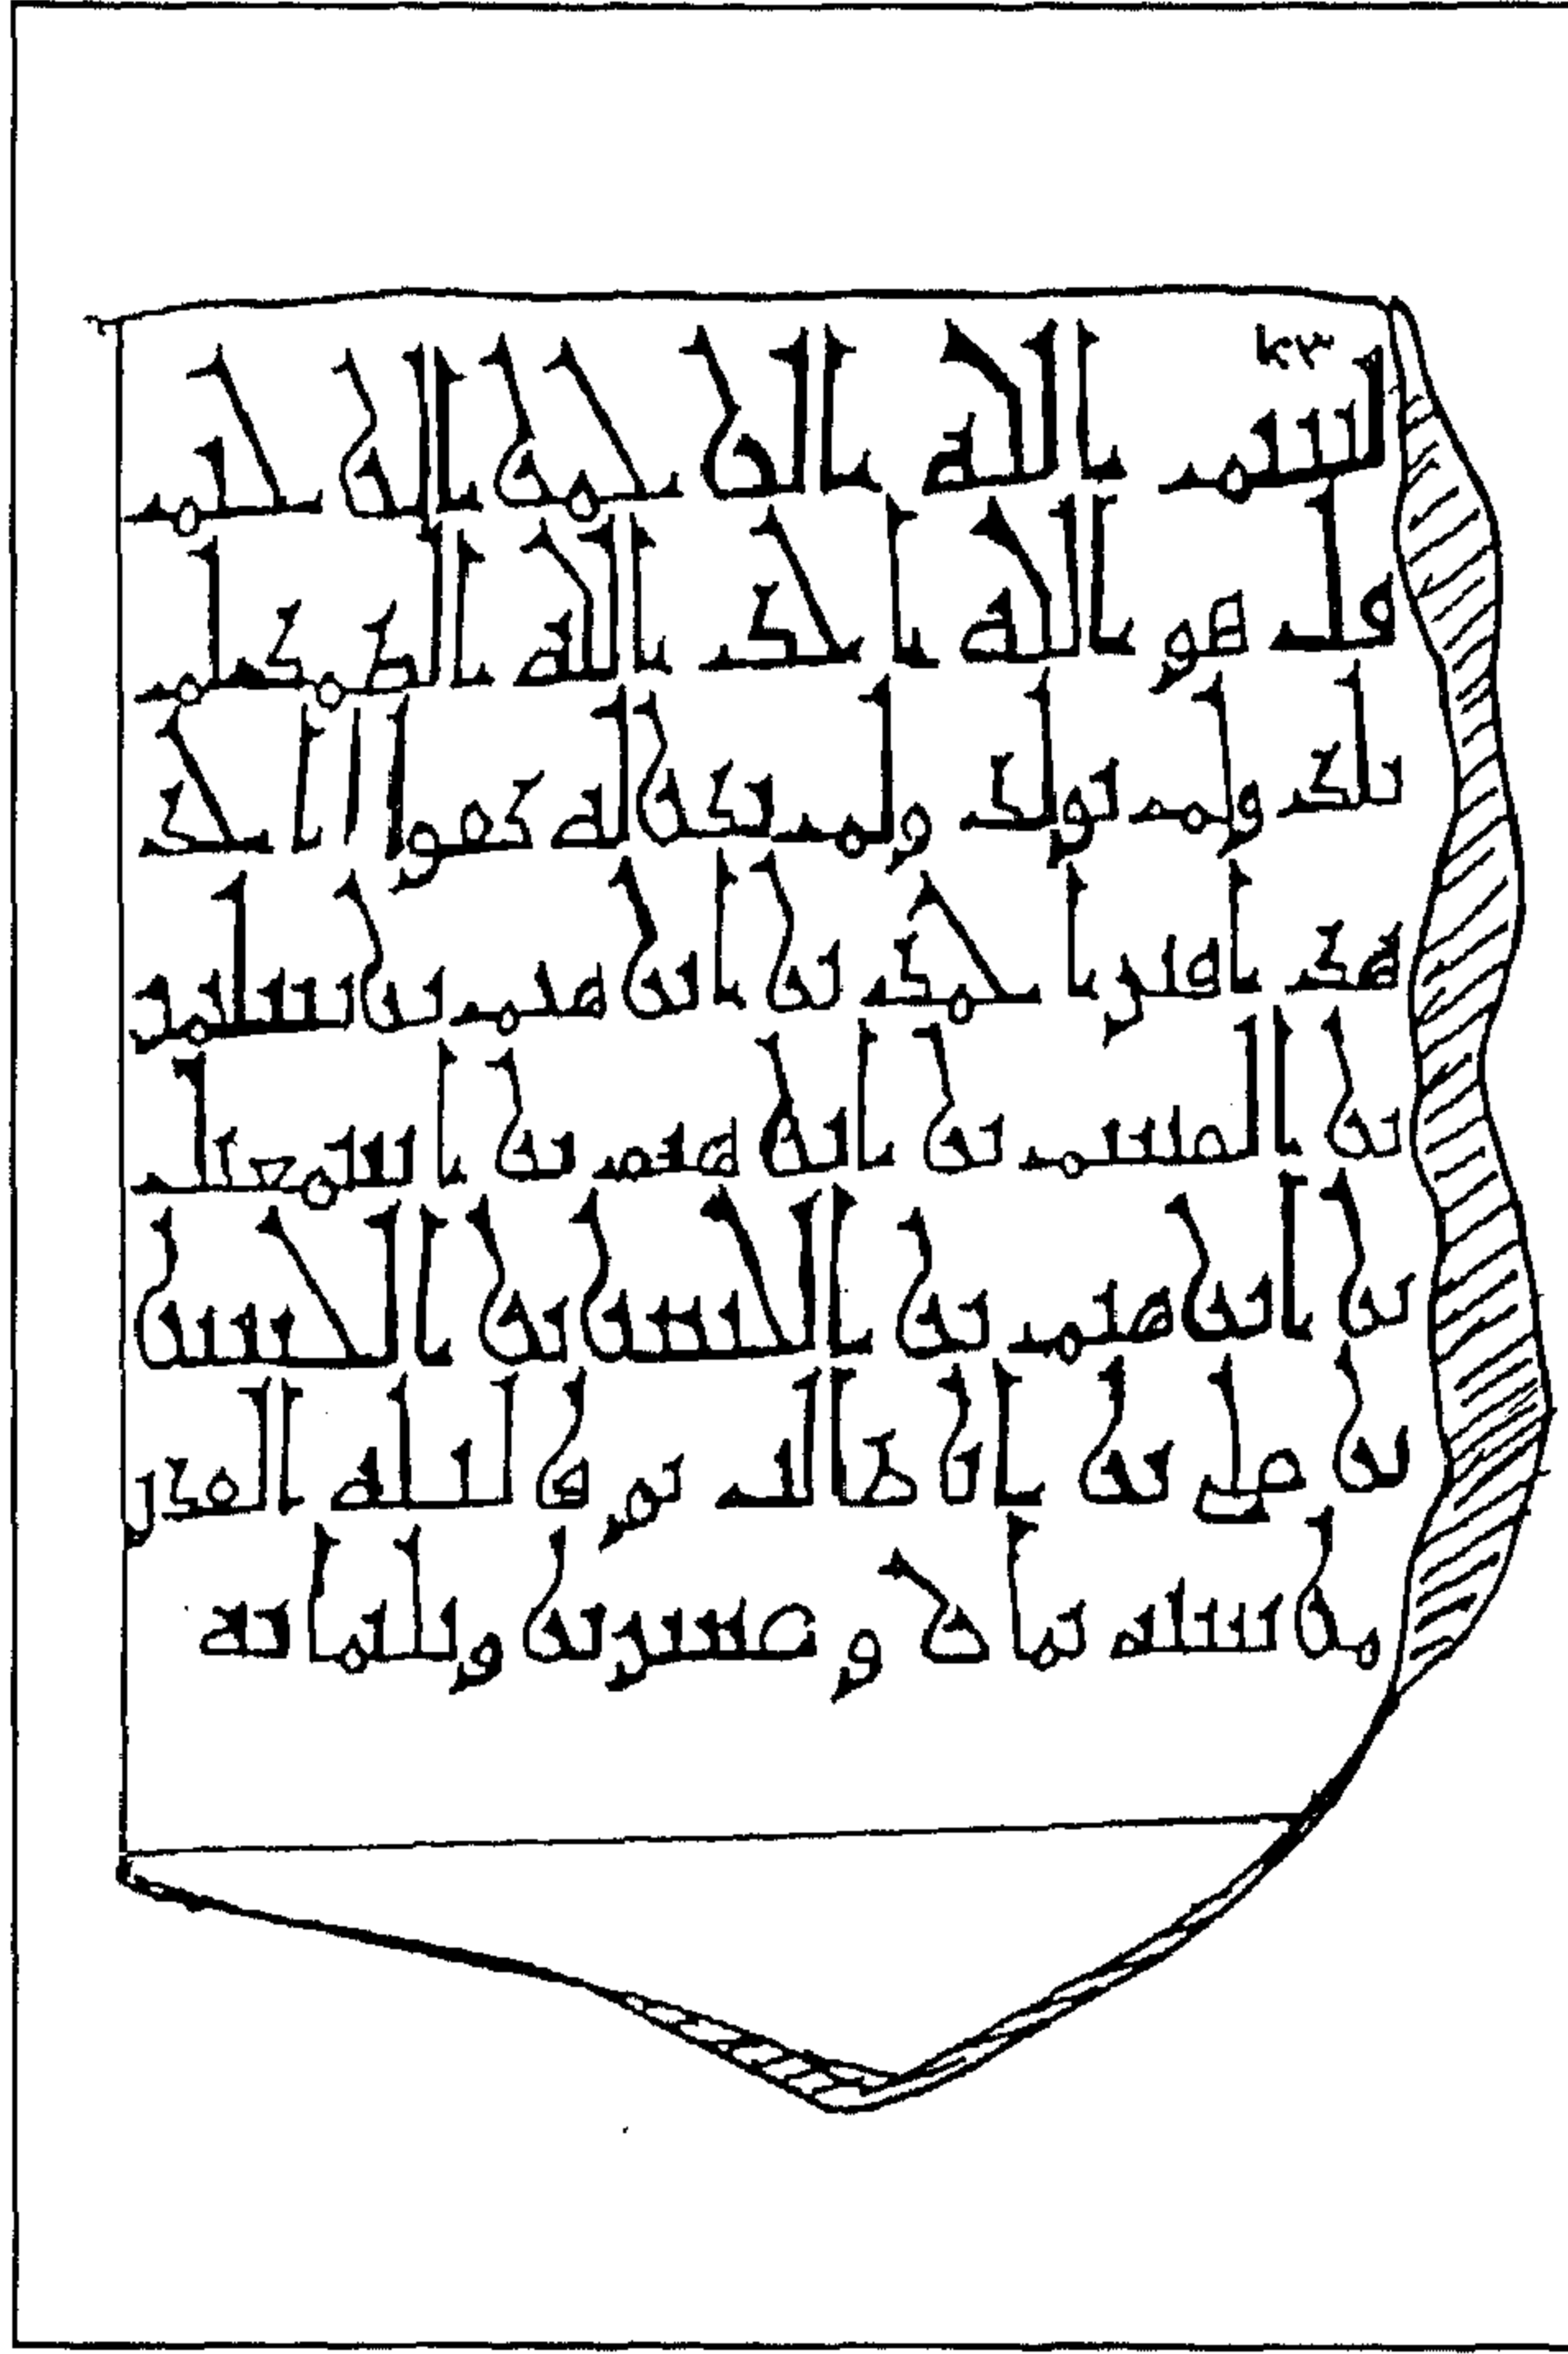 بسم الله الرحمن الرحيم
قل هو الله احد الله الصمد لم
يلد ولم يولد ولم يكن له كفوا احد
هذا قبر احمد بن ابرهيم بن سليمن
بن القسم بن ابرهيم بن اسمعيل
بن ابرهيم بن الحسن بن الحسن
بن علي بن ابي طالب توفي ليلة القدر
من سنة ثمان وعشرين وثلثمائة